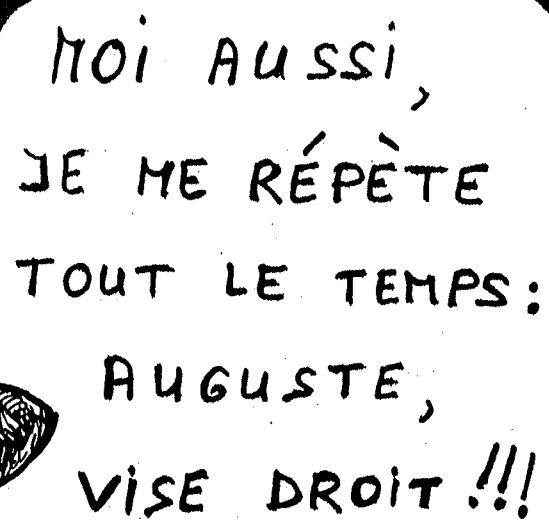 MOi AUSSi,
JE ME RÉPÈTE
TOUT LE TEMPS:
AUGUSTE,
ViSE DROiT!!!